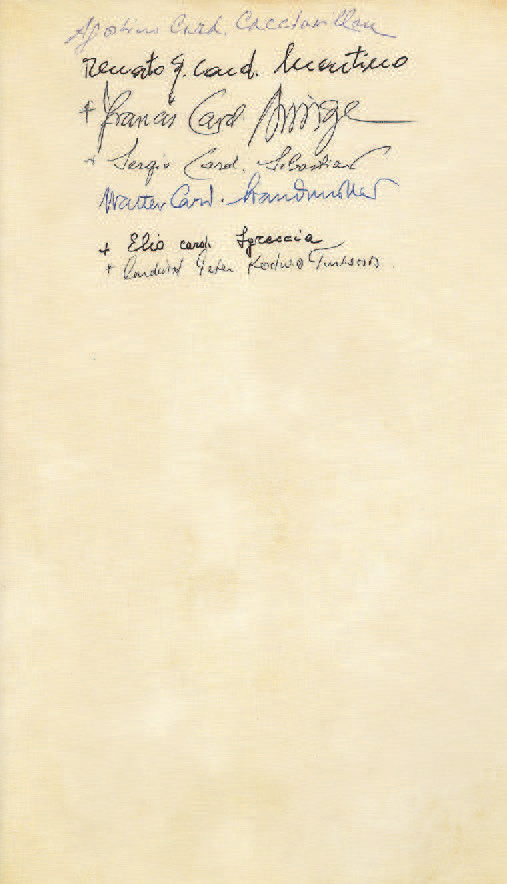 Agostino Card. Cacciavillan
Renato R. Card. Martino
+ Francis Card. Arinze
+ Sergio Card. Sebastiani
Walter Card. Brandmüller
+ Elio card. Sgreccia
+ Cardinal Peter Kodwo Turkson